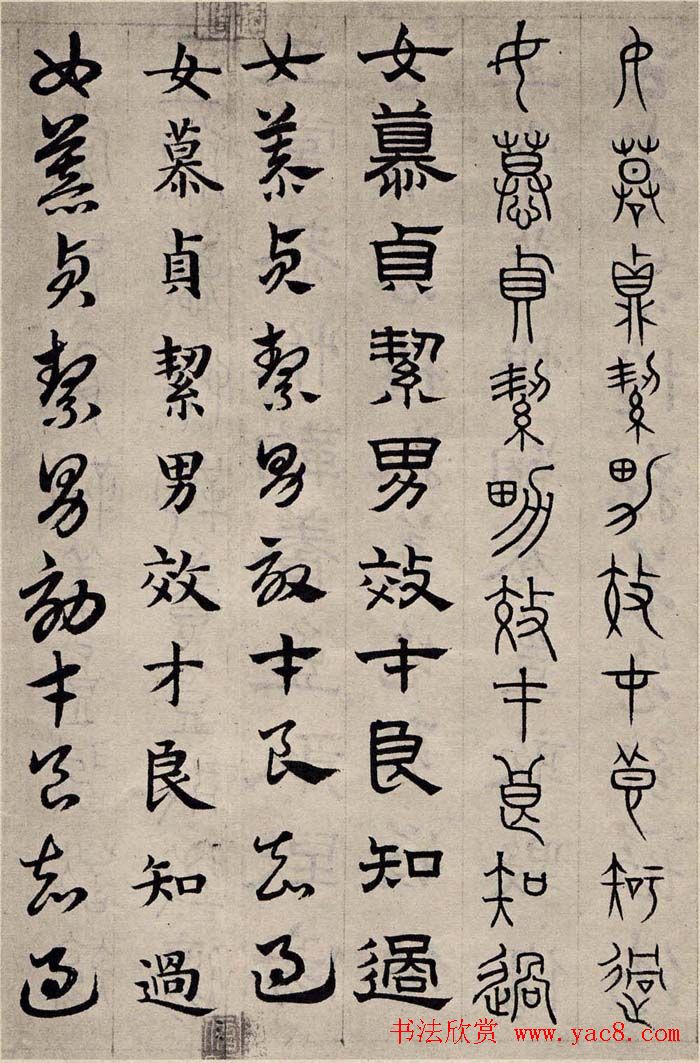 女慕貞絜男效才良知過
女慕貞絜男效才良知過
女慕貞絜男效才良知過
女慕貞絜男效才良知過
女慕貞絜男效才良知過
女慕貞絜男効才良知過
书法欣赏 www.yac8.com